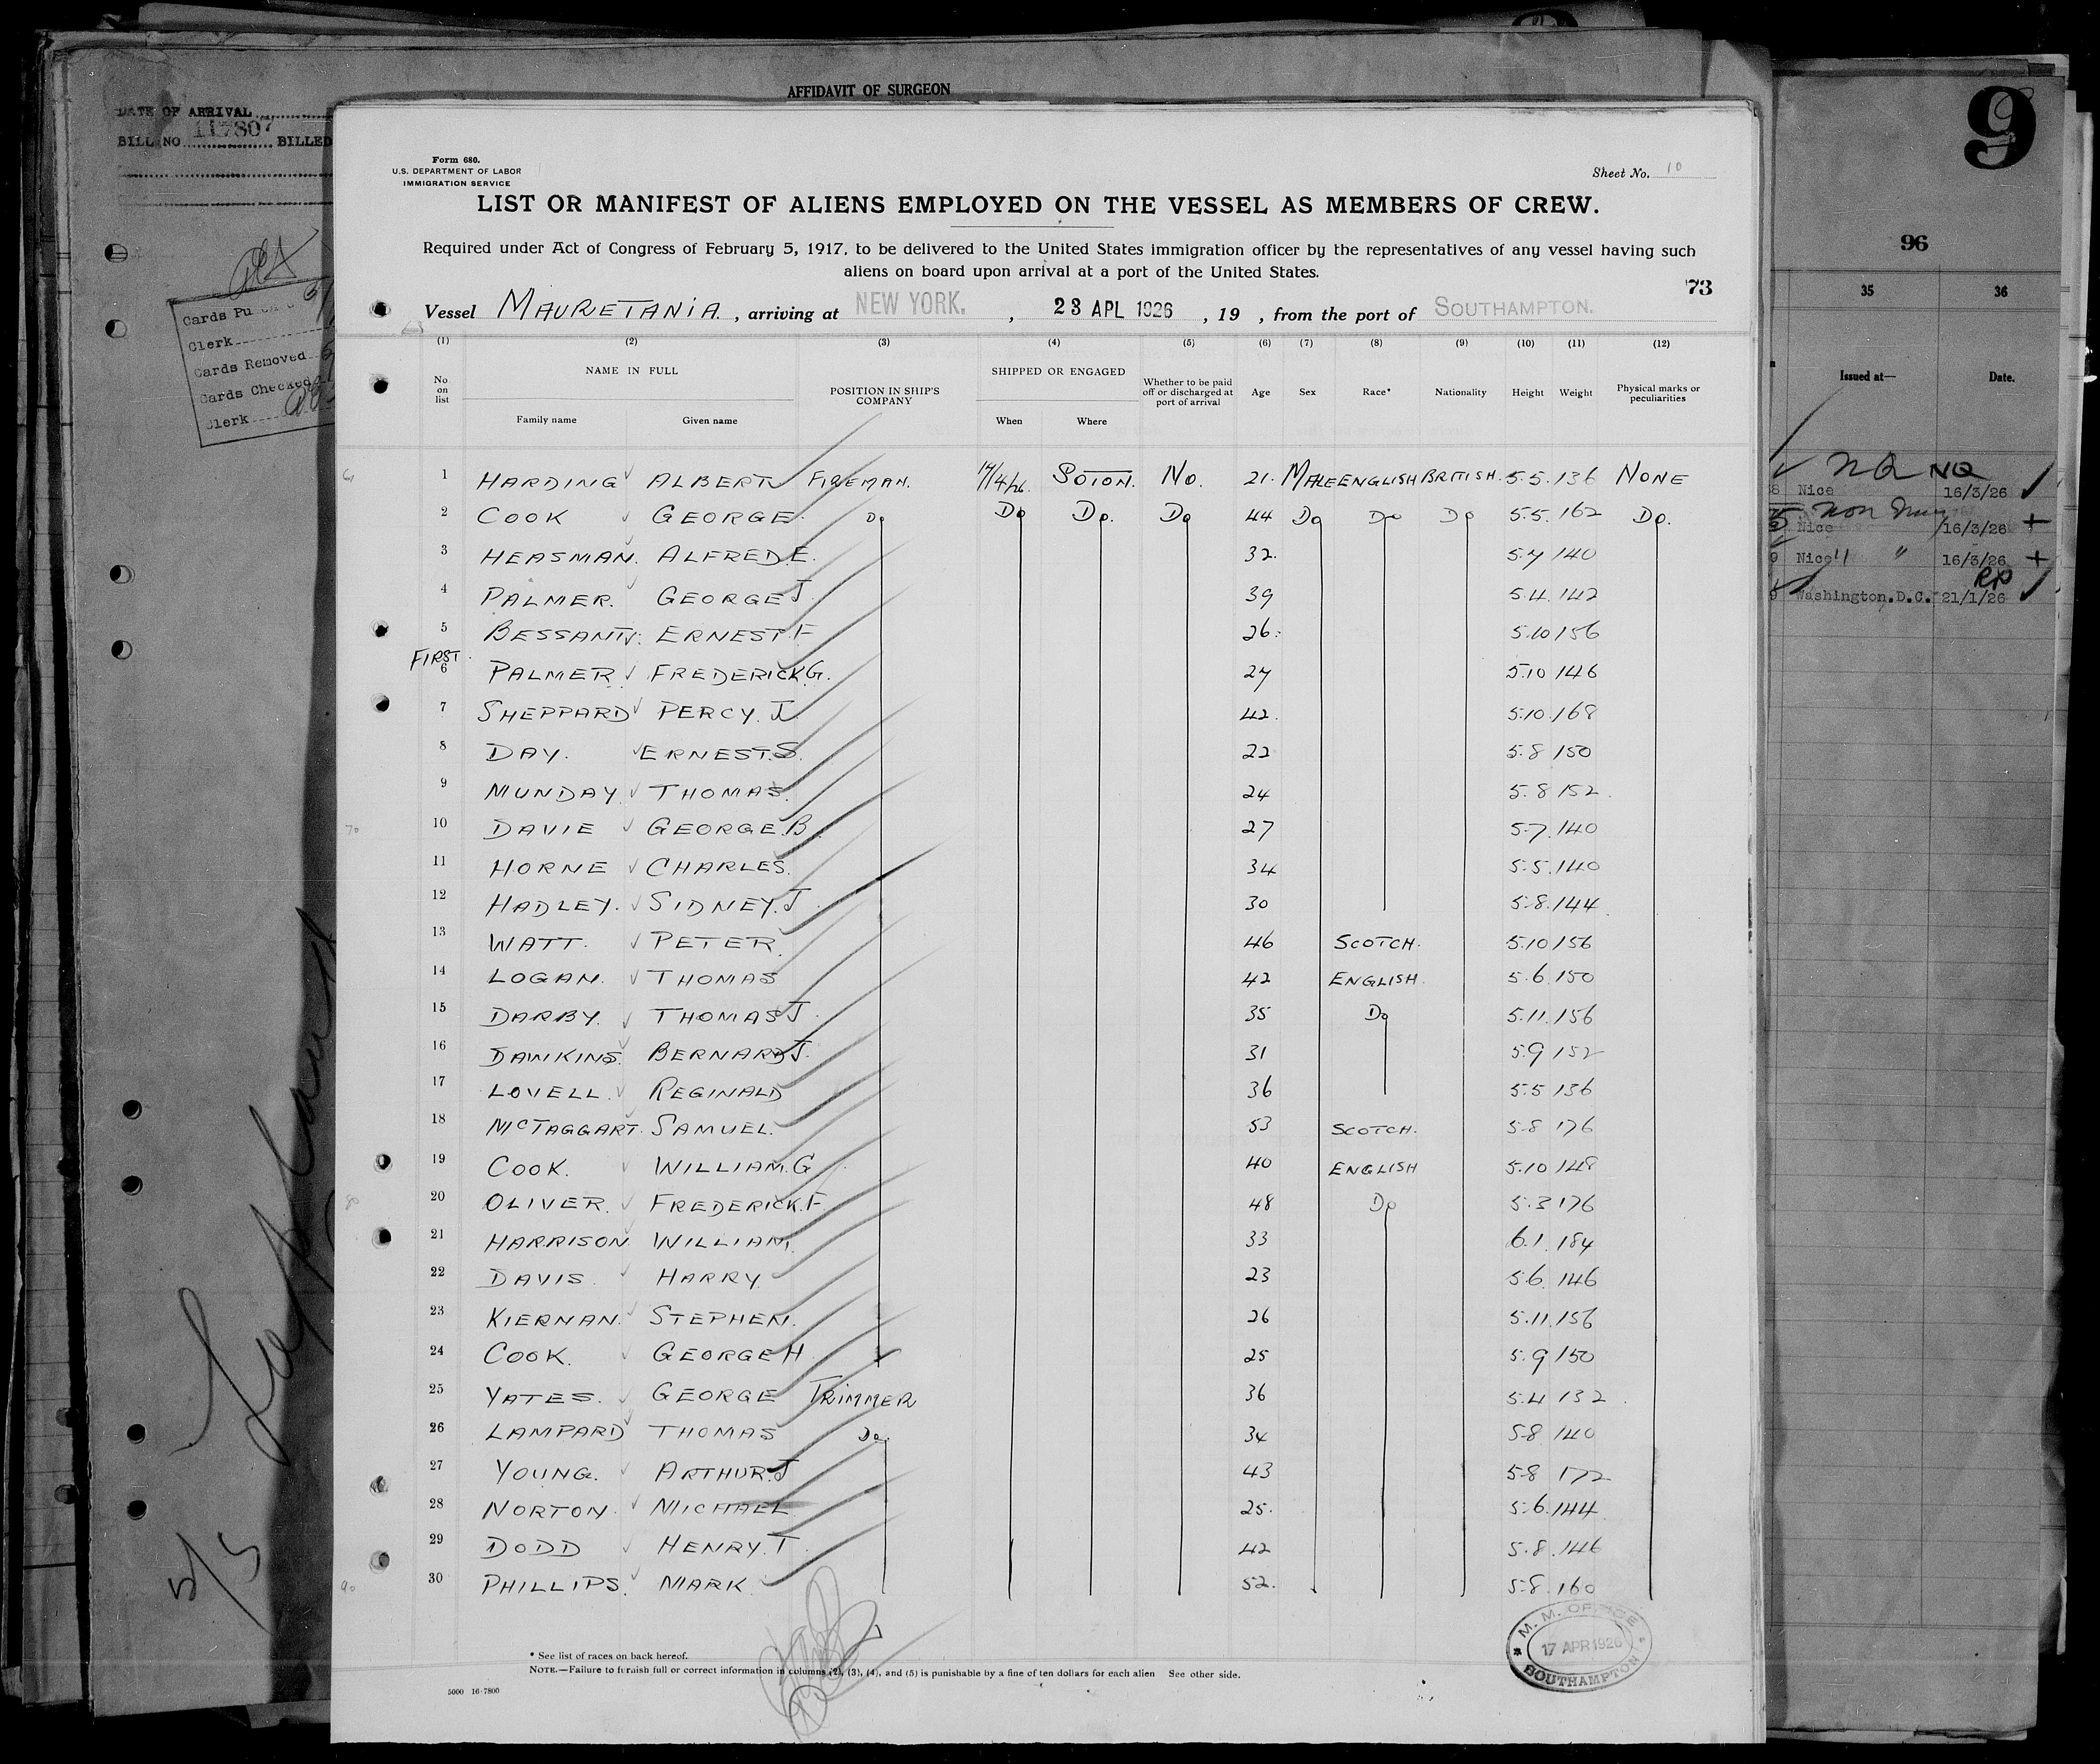 AFFIDAVIT OF SURGEON
DATE OF ARRIVAL
117807
BILL NO. BILLED
Cards Pu
Clerk
Cards Removed
Cards Checked
Clerk
5/5
9
96
35 36
Issued at— Date.
NQ NQ
8 Nice 16/3/26
non Imm
Nice 16/3/26 +
9 Nice " " 16/3/26 +
RP
9 Washington.D.C. 21/1/26
Form 680.
U.S. DEPARTMENT OF LABOR
IMMIGRATION SERVICE
Sheet No. 10
LIST OR MANIFEST OF ALIENS EMPLOYED ON THE VESSEL AS MEMBERS OF CREW.
Required under Act of Congress of February 5, 1917, to be delivered to the United States immigration officer by the representatives of any vessel having such
aliens on board upon arrival at a port of the United States.
73
Vessel MAURETANIA, arriving at NEW YORK., 23 APL 1926, 19 , from the port of SOUTHAMPTON.
(1) (2) (3) (4) (5) (6) (7) (8) (9) (10) (11) (12)
No on list NAME IN FULL Family name Given name POSITION IN SHIP'S COMPANY SHIPPED OR ENGAGED When Where Whether to be paid off or discharged at port of arrival Age Sex Race* Nationality Height Weight Physical marks or peculiarities
61 1 HARDING ALBERT FIREMAN. 17/4/26. SOTON. No. 21. MALE ENGLISH BRITISH. 5.5. 136 NONE
2 COOK GEORGE. Do Do Do. Do 44 Do Do Do 5.5. 162 Do.
3 HEASMAN. ALFRED.E. 32. 5.7 140
4 PALMER. GEORGE J. 39 5.4. 142
5 BESSANT. ERNEST.F 26. 5.10 156
FIRST.
6 PALMER FREDERICK.G. 27 5.10 146
7 SHEPPARD PERCY. J. 42. 5.10. 168
8 DAY. ERNEST.S. 22 5.8 150
9 MUNDAY. THOMAS. 24 5.8 152.
70 10 DAVIE GEORGE.B. 27 5.7. 140
11 HORNE CHARLES. 34 5.5. 140
12 HADLEY. SIDNEY.J. 30 5.8. 144.
13 WATT. PETER. 46 SCOTCH. 5.10 156
14 LOGAN. THOMAS 42 ENGLISH. 5.6. 150
15 DARBY. THOMAS J. 35 Do 5.11. 156
16 DAWKINS. BERNARD J. 31 5.9 152
17 LOVELL. REGINALD 36 5.5 136
18 McTAGGART. SAMUEL. 53 SCOTCH. 5.8 176
19 COOK. WILLIAM.G. 40 ENGLISH 5.10 148
80 20 OLIVER. FREDERICK.F. 48 Do 5.3 176
21 HARRISON. WILLIAM. 33 6.1. 184
22 DAVIS. HARRY. 23 5.6. 146
23 KIERNAN. STEPHEN. 26 5.11. 156
24 COOK. GEORGE H. 25 5.9 150
25 YATES. GEORGE TRIMMER 36 5.4 132.
26 LAMPARD THOMAS Do. 34 5.8 140
27 YOUNG. ARTHUR.J 43 5.8 172
28 NORTON. MICHAEL. 25. 5.6. 144.
29 DODD HENRY.T. 42 5.8. 146
90 30 PHILLIPS. MARK. 52. 5.8. 160
* See list of races on back hereof.
NOTE.—Failure to furnish full or correct information in columns (2), (3), (4), and (5) is punishable by a fine of ten dollars for each alien See other side.
5000 16-7800
M. M. OFFICE
17 APR 1926
SOUTHAMPTON